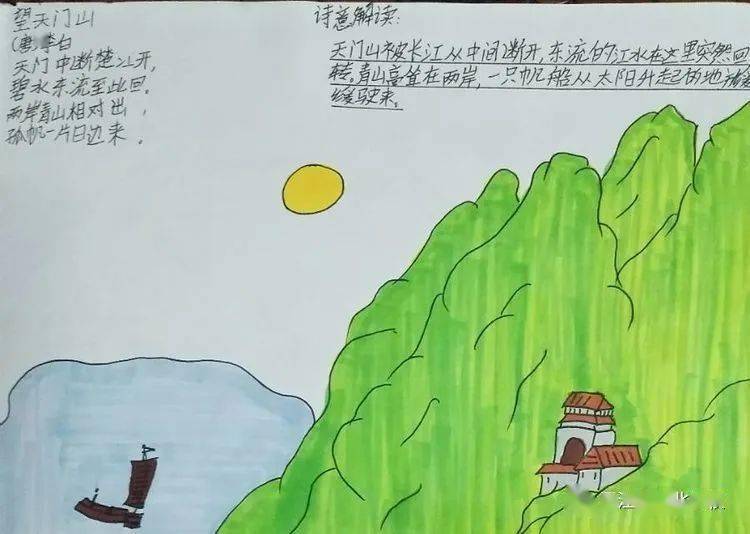 望天门山
(唐)李白
天门中断楚江开,
碧水东流至此回。
两岸青山相对出,
孤帆一片日边来。
诗意解读:
天门山被长江从中间断开,东流的江水在这里突然回
转。青山矗立在两岸,一只帆船从太阳升起的地
缓驶来。